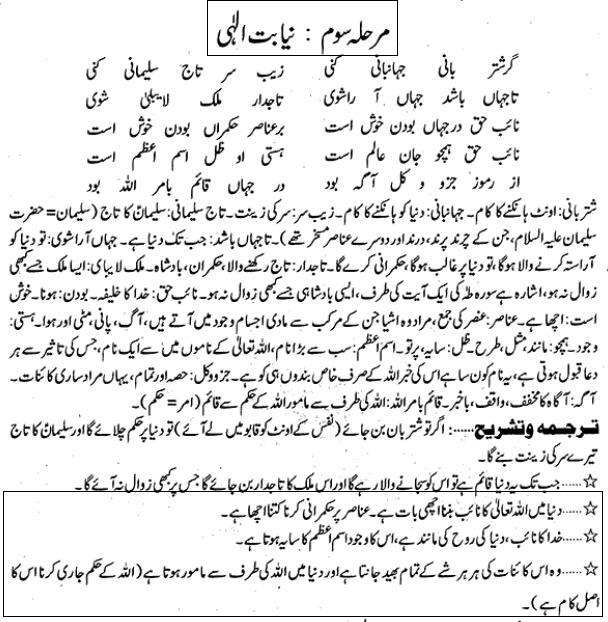 مرحلہ سوم : نیابت الٰہی
گر شتر بانی جہانبانی کنی زیب سر تاج سلیمانی کنی
تاجہاں باشد جہاں آرا شوی تاجدار ملک لایبلیٰ شوی
نائب حق در جہاں بودن خوش است بر عناصر حکمراں بودن خوش است
نائب حق ہمچو جان عالم است ہستی او ظل اسم اعظم است
از رموز جزو و کل آگہ بود در جہاں قائم بامر اللہ بود
شتر بانی: اونٹ ہانکنے کا کام۔ جہانبانی: دنیا کو ہانکنے کا کام۔ زیب سر: سر کی زینت۔ تاج سلیمانی: سلیمانؑ کا تاج (سلیمان= حضرت
سلیمان علیہ السلام، جن کے چرند پرند، درند اور دوسرے عناصر مسخر تھے)۔ تا جہاں باشد: جب تک دنیا ہے۔ جہاں آرا شوی: تو دنیا کو
آراستہ کرنے والا ہوگا، تو دنیا پر غالب ہوگا، حکمرانی کرے گا۔ تاجدار: تاج رکھنے والا، حکمران، بادشاہ۔ ملک لا یبلی: ایسا ملک جسے کبھی
زوال نہ ہو، اشارہ ہے سورہ طہٰ کی ایک آیت کی طرف، ایسی بادشاہی جسے کبھی زوال نہ ہو۔ نائب حق: خدا کا خلیفہ۔ بودن: ہونا۔ خوش
است: اچھا ہے۔ عناصر: عنصر کی جمع، مراد وہ اشیا جن کے مرکب سے مادی اجسام وجود میں آتے ہیں، آگ، پانی، مٹی اور ہوا۔ ہستی:
وجود۔ ہمچو: مانند، مثل، طرح۔ ظل: سایہ، پرتو۔ اسم اعظم: سب سے بڑا نام، اللہ تعالیٰ کے ناموں میں سے ایک نام، جس کی تاثیر سے ہر
دعا قبول ہوتی ہے، یہ نام کون سا ہے اس کی خبر اللہ کے صرف خاص بندوں ہی کو ہے۔ جزو و کل: حصہ اور تمام، یہاں مراد ساری کائنات۔
آگہ: آگاہ کا مخفف، واقف، باخبر۔ قائم بامر اللہ: اللہ کی طرف سے مامور اللہ کے حکم سے قائم (امر = حکم)۔
ترجمہ وتشریح......: اگر تو شتر بان بن جائے (نفس کے اونٹ کو قابو میں لے آئے) تو دنیا پر حکم چلائے گا اور سلیمانؑ کا تاج
تیرے سر کی زینت بنے گا۔
☆......جب تک یہ دنیا قائم ہے تو اس کو سجانے والا رہے گا اور اس ملک کا تاجدار بن جائے گا جس پر کبھی زوال نہ آئے گا۔
☆......دنیا میں اللہ تعالیٰ کا نائب بننا اچھی بات ہے۔ عناصر پر حکمرانی کرنا کتنا اچھا ہے۔
☆......خدا کا نائب، دنیا کی روح کی مانند ہے، اس کا وجود اسم اعظم کا سایہ ہوتا ہے۔
☆......وہ اس کائنات کی ہر ہر شے کے تمام بھید جانتا ہے اور دنیا میں اللہ کی طرف سے مامور ہوتا ہے (اللہ کے حکم جاری کرنا اس کا
اصل کام ہے)۔